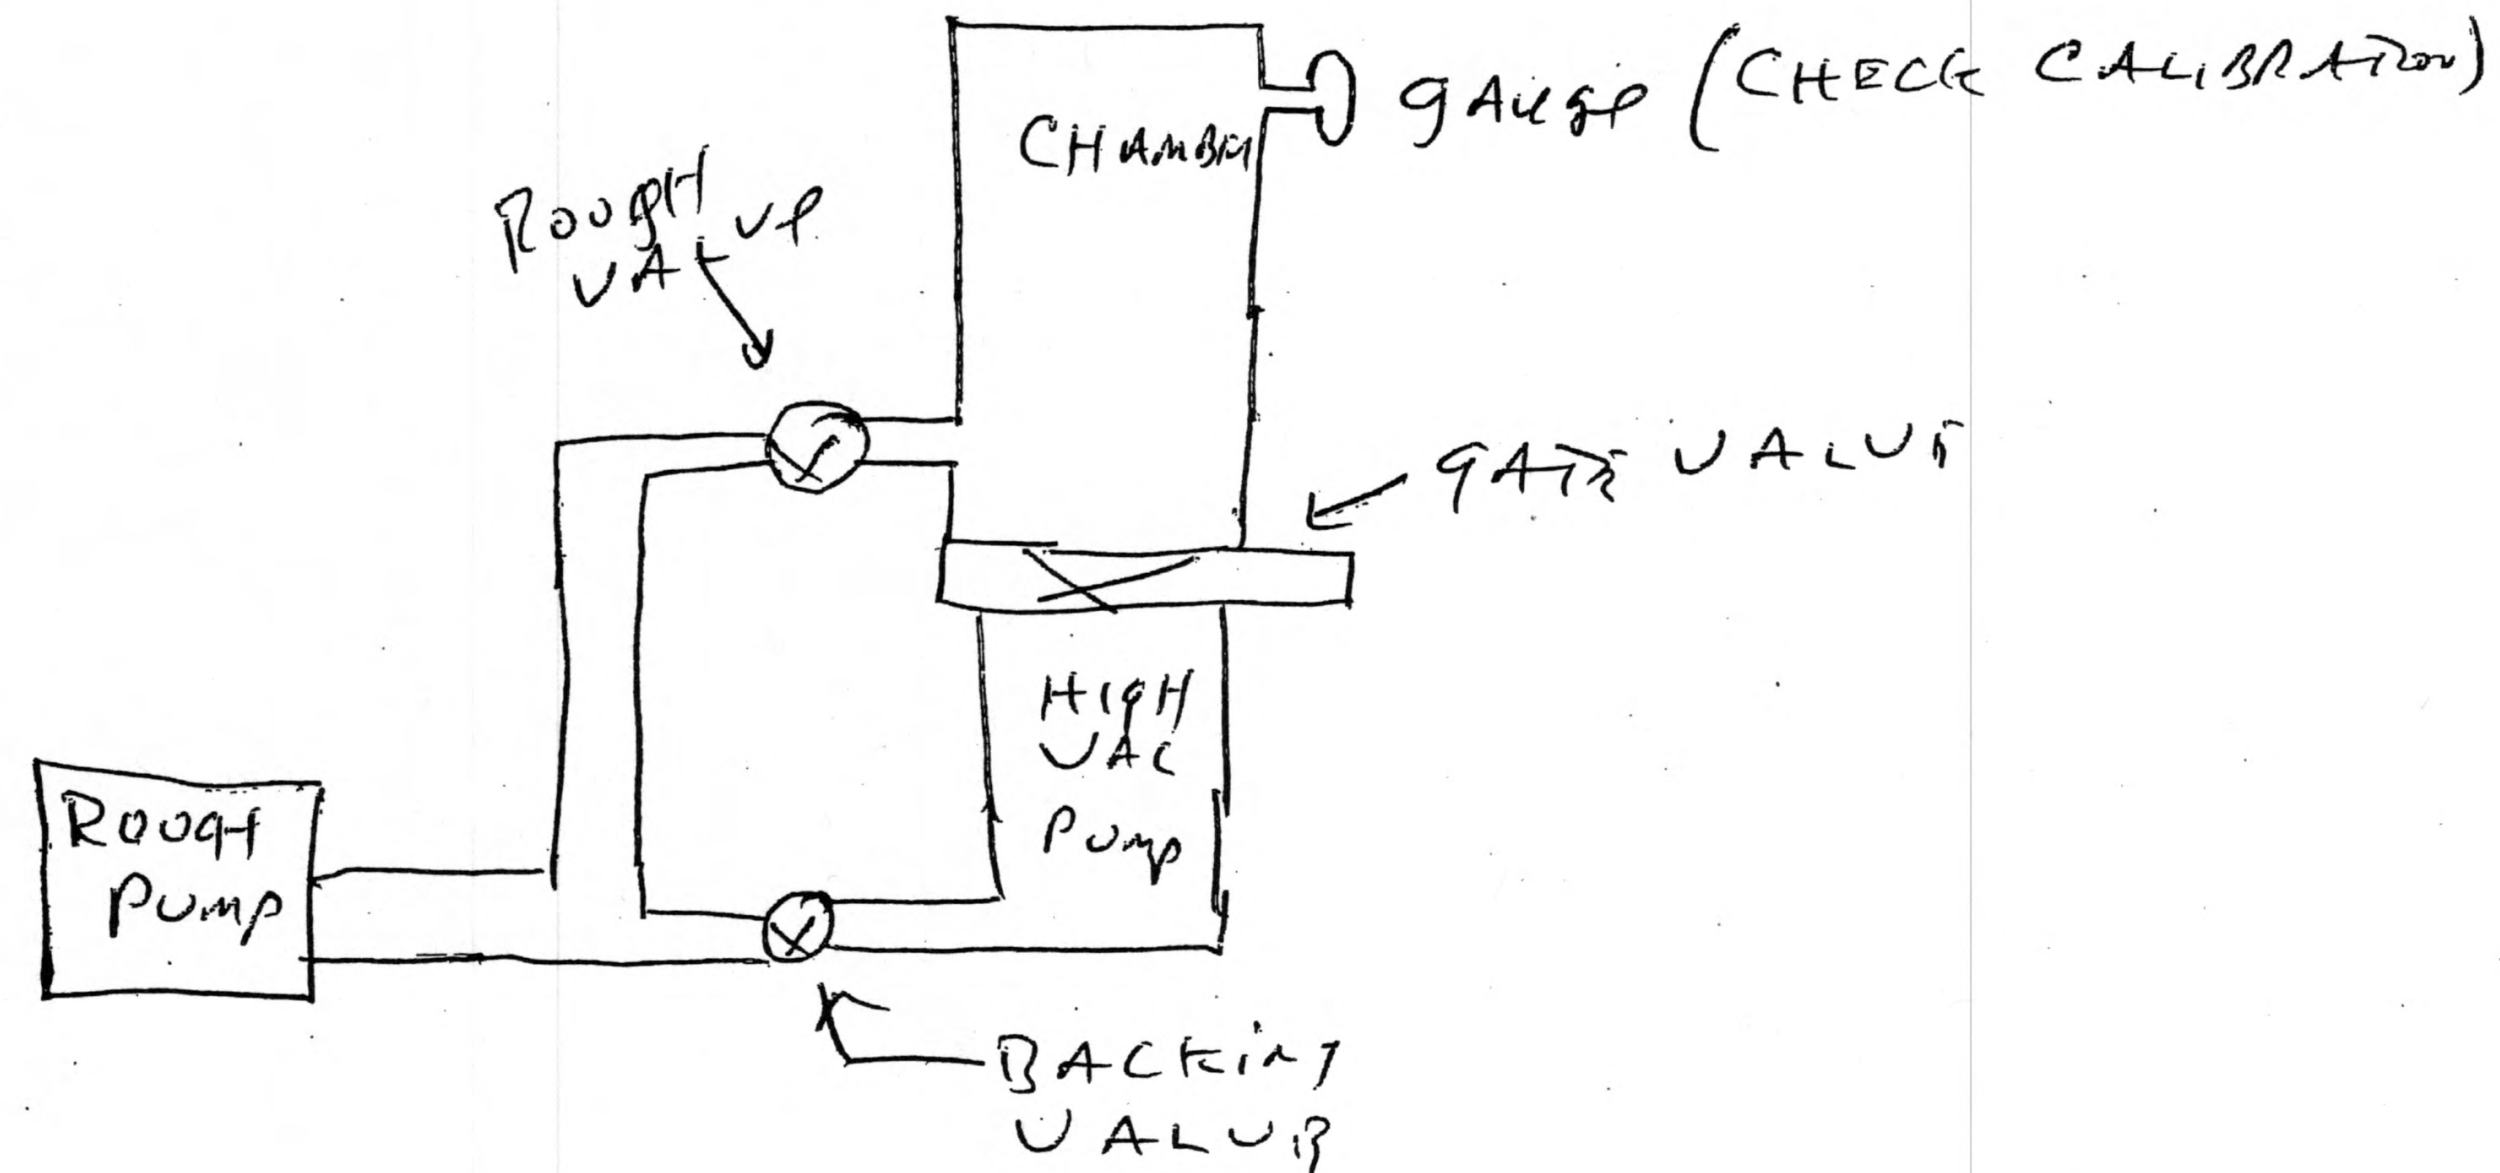 gAUge (CHECK CALIBRATION)
CHAMBER
ROUgH
VALVe
gATE VALVE
HIgH
VAC
PUmp
ROUgH
PUmp
BACKing
VALVE